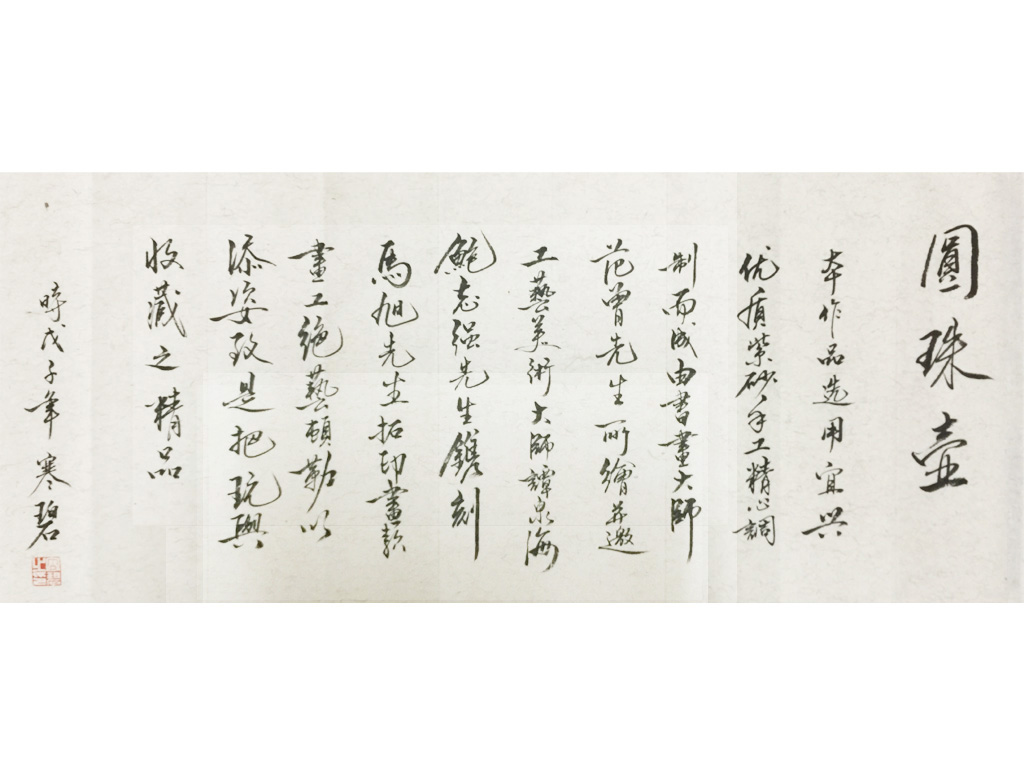 圓珠壺
本作品选用宜興
优質紫砂手工精心調
制而成由書畫大師
范曾先生所繪并邀
工藝美術大師譚泉海
鮑志强先生鐫刻
馬旭先生拓印畫款
畫工绝藝頓勒以
添姿致是把玩與
收藏之精品
時戊子年寒碧